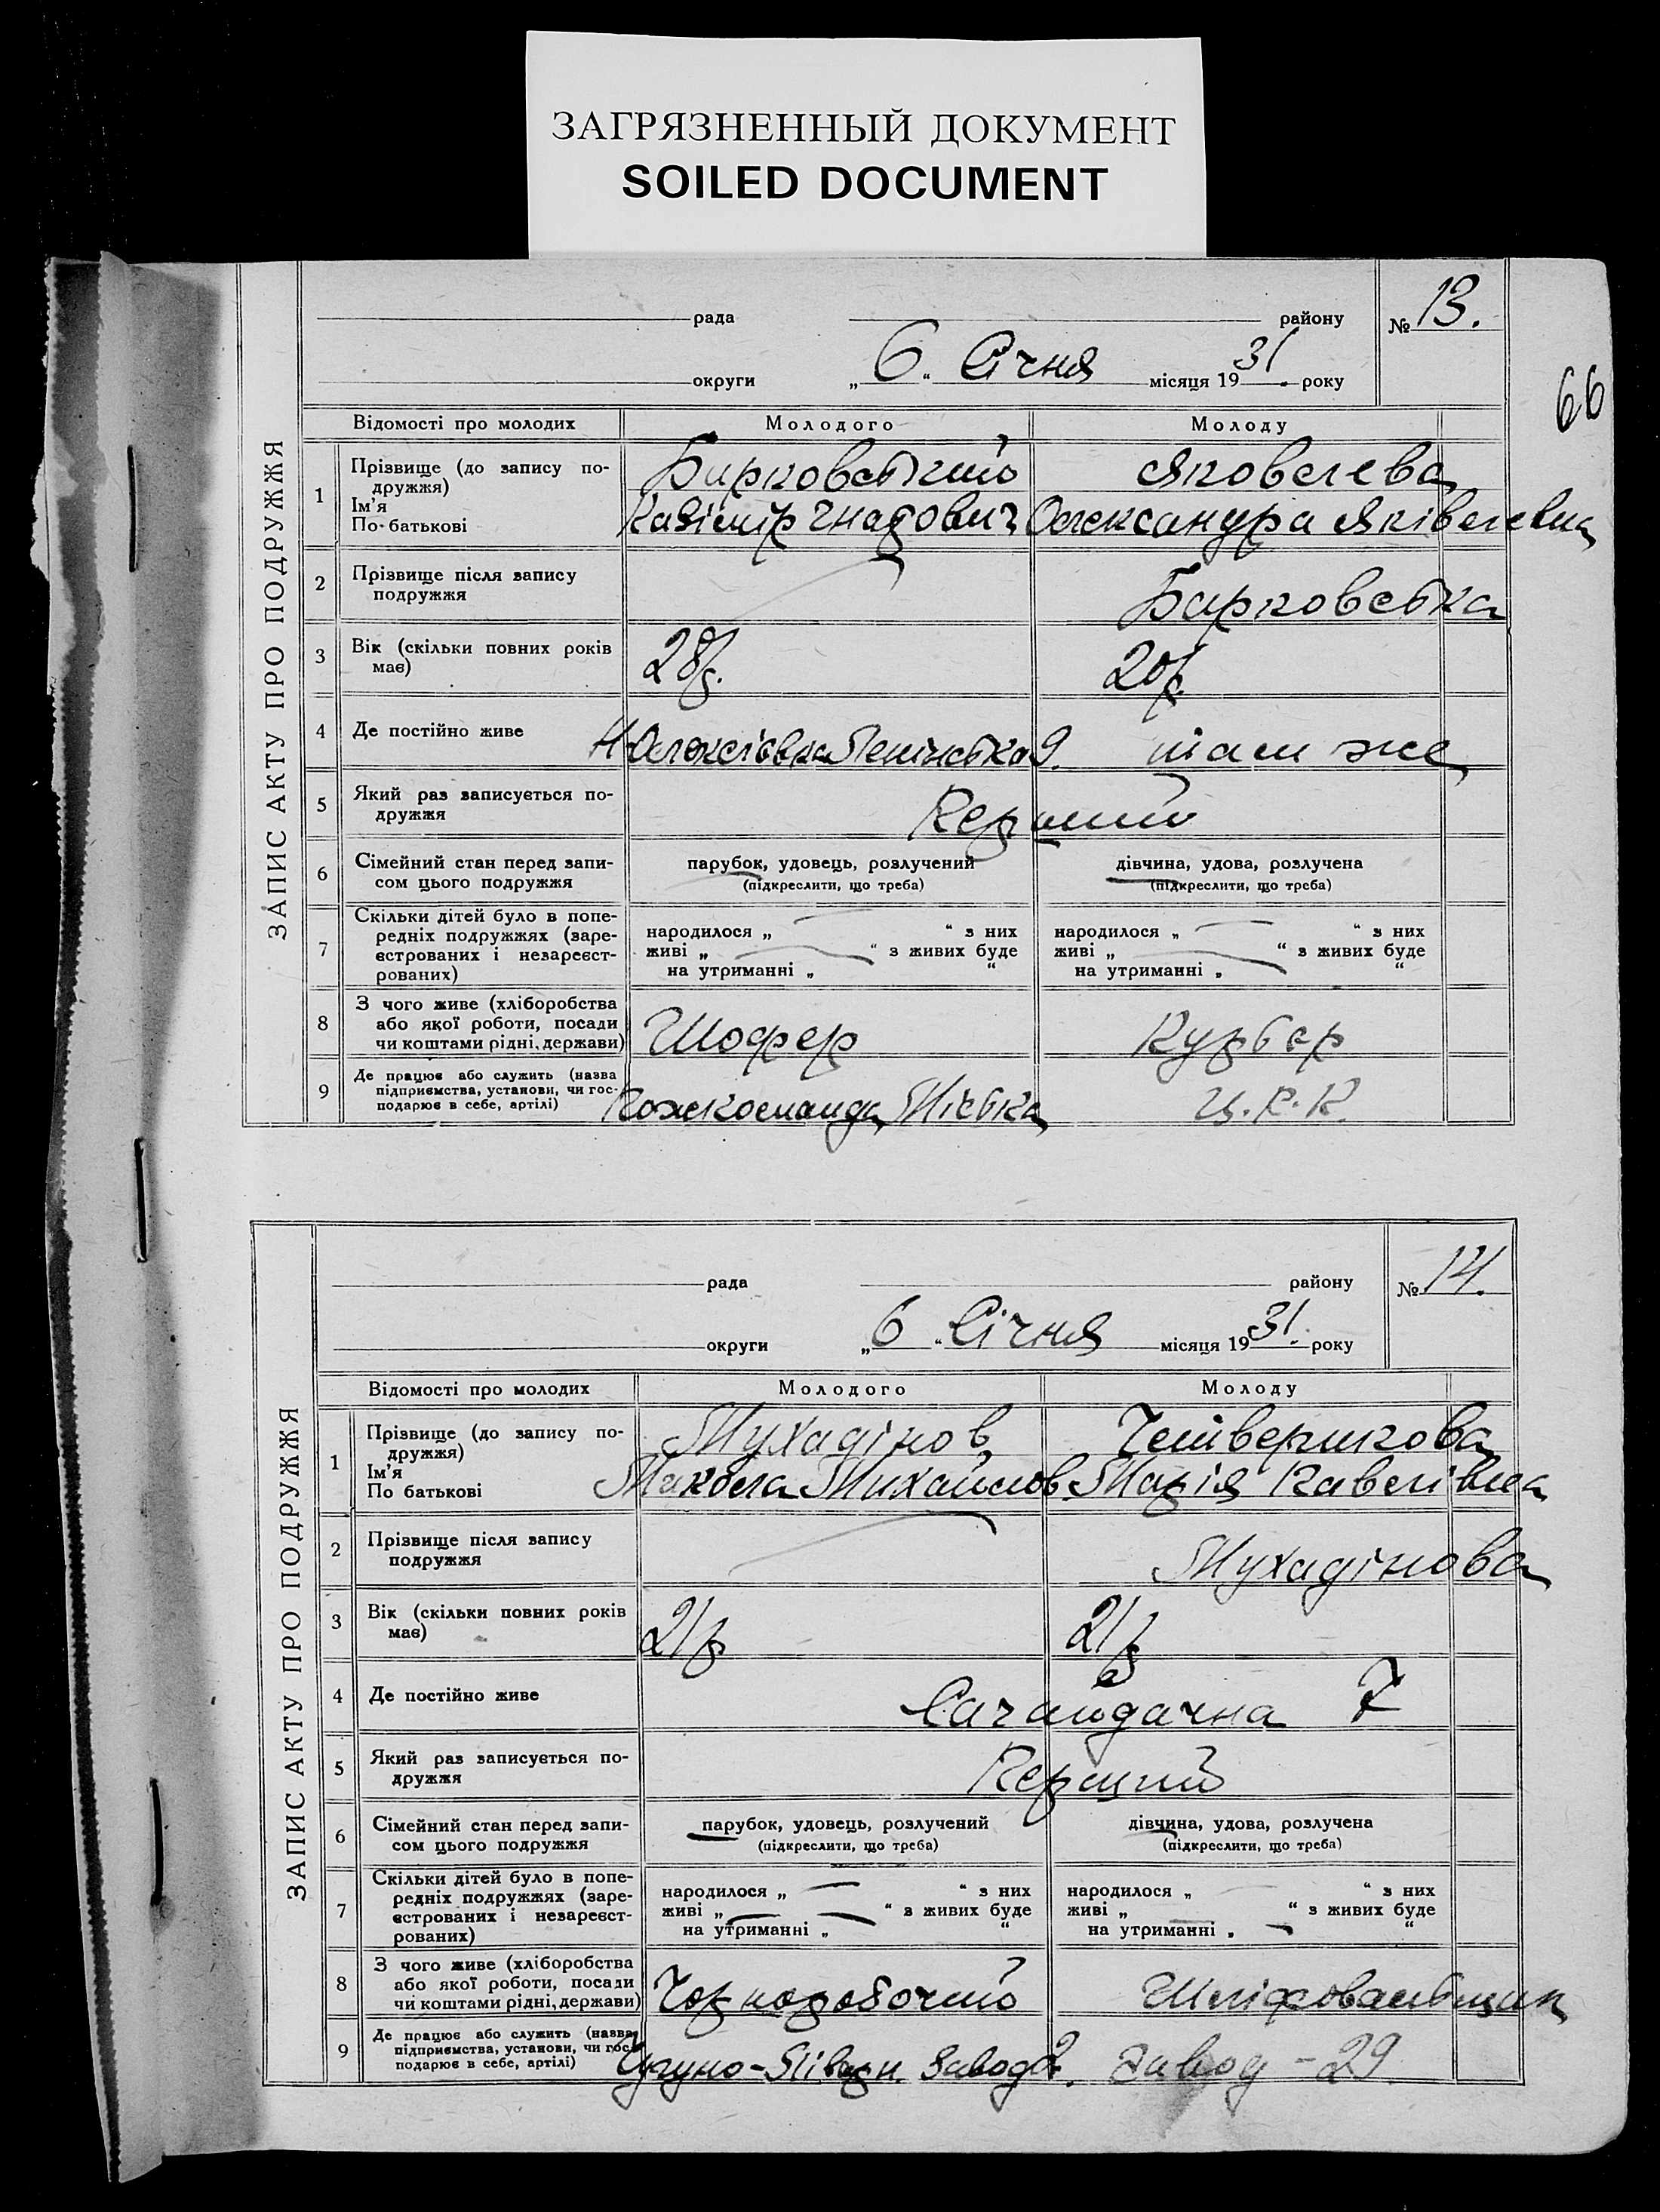 ЗАГРЯЗНЕННЫЙ ДОКУМЕНТ
SOILED DOCUMENT
66
ЗАПИС АКТУ ПРО ПОДРУЖЖЯ
рада району № 13.
округи „ 6 “ Січня місяця 1931. року
Відомості про молодих Молодого Молоду
1 Прізвище (до запису по-
дружжя)
Ім'я
По-батькові
Яковлева
Олександра Яківлевна
2 Прізвище після запису
подружжя
Барковська
3 Вік (скільки повних років
має)
28 р. 20 р.
4 Де постійно живе там же
5 Який раз записується по-
дружжя
Перший
6 Сімейний стан перед запи-
сом цього подружжя
парубок, удовець, розлучений
(підкреслити, що треба)
дівчина, удова, розлучена
(підкреслити, що треба)
7 Скільки дітей було в попе-
редніх подружжях (заре-
єстрованих і незареєст-
рованих)
народилося „ “ з них
живі „ “ з живих буде
на утриманні „ “
народилося „ “ з них
живі „ “ з живих буде
на утриманні „ “
8 З чого живе (хліборобства
або якої роботи, посади
чи коштами рідні, держави)
Шофер Курьер
9 Де працює або служить (назва
підприємства, установи, чи гос-
подарює в себе, артілі)
Пожкоманда Міська
ЗАПИС АКТУ ПРО ПОДРУЖЖЯ
рада району № 14.
округи „ 6 “ Січня місяця 1931. року
Відомості про молодих Молодого Молоду
1 Прізвище (до запису по-
дружжя)
Ім'я
По батькові
Мухадінов Четверикова
Микола Михайлов. Марія Павлівна
2 Прізвище після запису
подружжя
Мухадінова
3 Вік (скільки повних років
має)
21 р 21 р
4 Де постійно живе 7
5 Який раз записується по-
дружжя
Перший
6 Сімейний стан перед запи-
сом цього подружжя
парубок, удовець, розлучений
(підкреслити, що треба)
дівчина, удова, розлучена
(підкреслити, що треба)
7 Скільки дітей було в попе-
редніх подружжях (заре-
єстрованих і незареєст-
рованих)
народилося „ “ з них
живі „ “ з живих буде
на утриманні „ “
народилося „ “ з них
живі „ “ з живих буде
на утриманні „ “
8 З чого живе (хліборобства
або якої роботи, посади
чи коштами рідні, держави)
Чорноробочий
9 Де працює або служить (назва
підприємства, установи, чи гос-
подарює в себе, артілі)
Чугуно-Ливарн. Завод Завод - 29.